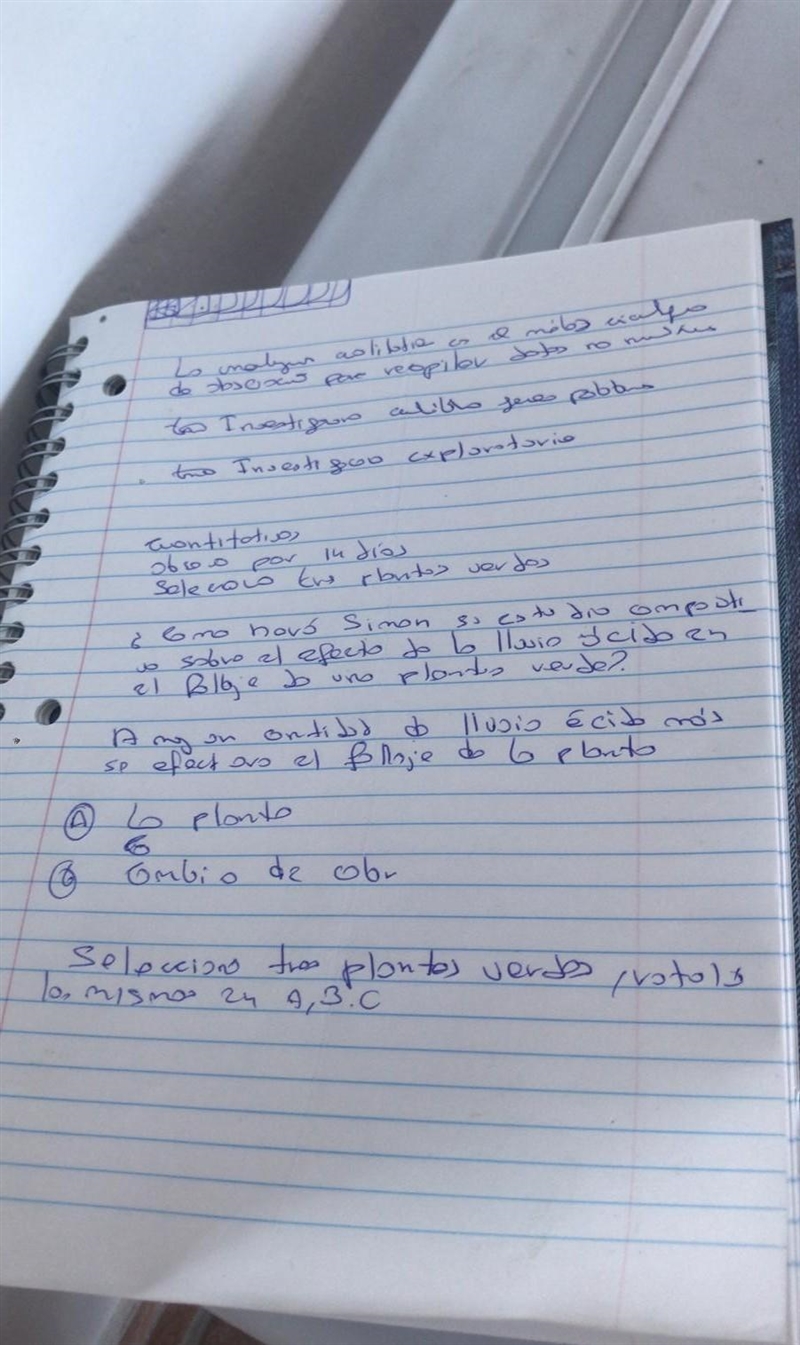 La investigacion cualitativa es el método científico
de observacion para recopilar datos no numericos
Investigacion cualitativa
Investigacion exploratorio
Cuantitativos
observo por 14 días
Selecciono tres plantas verdes
¿Como hará Simon su estudio comparati
vo sobre el efecto de la lluvia ácida en
el follaje de una planta verde?
A mayor cantidad de lluvia ácida más
se efectara el follaje de la planta
A La planta
Cambio de color
Selecciono tres plantas verdes, rotolo
las mismas en A, B. C